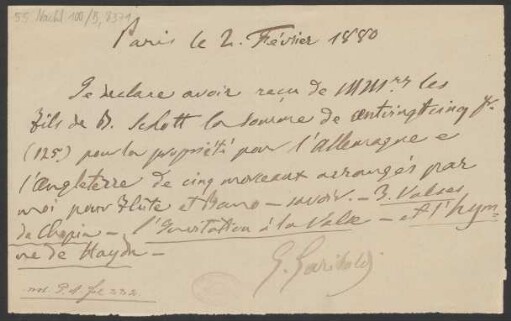 55 Nachl 100/B, 8371
Paris le 2. Février 1880
Je declare avoir reçu de MMrs les
fils de B. Schott la somme de centvingtcinq fr
(125.) pour la propriété pour l'Allemagne e
l'Angleterre de cinq morceaux arrangés par
moi pour Flûte et Piano – savoir. – 3. Valses
de Chopin – l'Invitation à la Valse – et l'hym
ne de Haydn –
G. Gariboldi